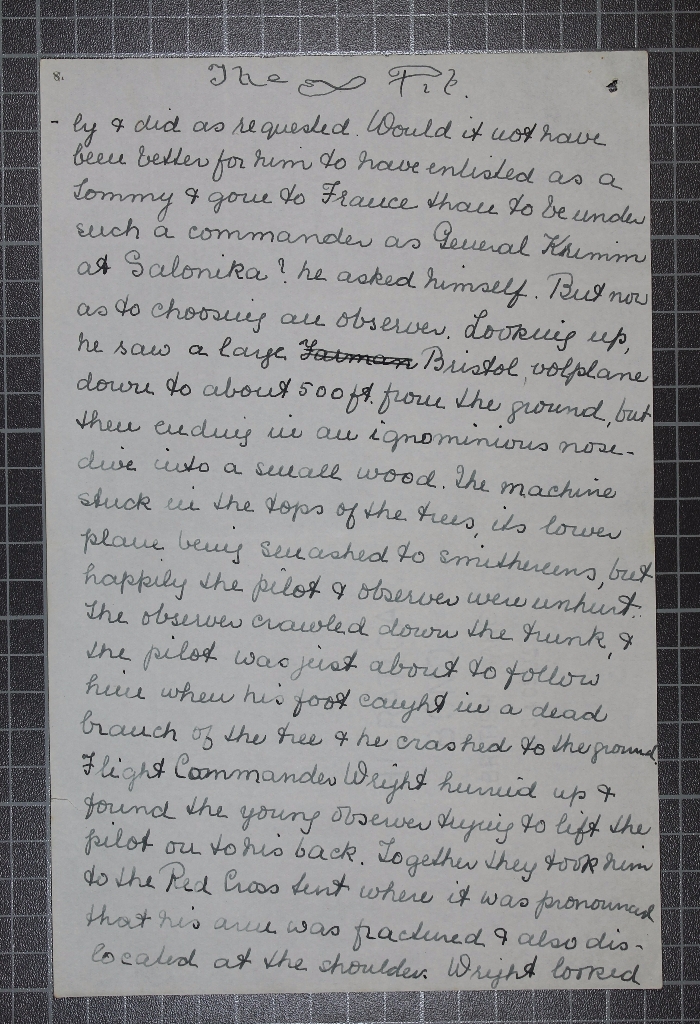 8. The Fit.
- ly & did as requested. Would it not have
been better for him to have enlisted as a
Tommy & gone to France than to be under
such a commander as General Krimm
at Salonika? he asked himself. But now
as to choosing an observer. Looking up,
he saw a large Farman Bristol, volplane
down to about 500ft. from the ground, but
then ending in an ignominious nose-
dive into a small wood. The machine
stuck in the tops of the trees, its lower
plane being smashed to smithereens, but
happily the pilot & observer were unhurt.
The observer crawled down the trunk, &
the pilot was just about to follow
him when his foot caught in a dead
branch of the tree & he crashed to the ground.
Flight Commander Wright hurried up &
found the young observer trying to lift the
pilot on to his back. Together they took him
to the Red Cross tent where it was pronounced
that his arm was fractured & also dis-
located at the shoulder. Wright looked